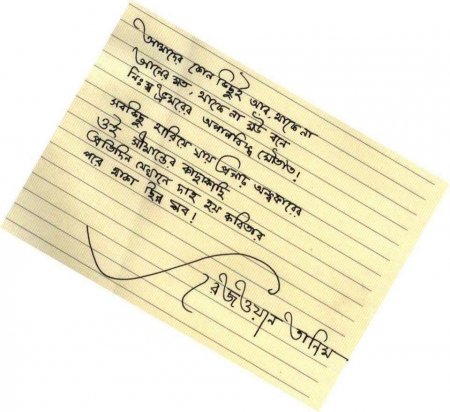 আমাদের কোন কিছুই আর থাকে না
আগের মত, থাকে না মউ বনে
নিঃস্ব ভ্রমরের অপাপবিদ্ধ মৌতাত!
সবকিছু হারিয়ে যায় অন্ধকারের
ওই সীমান্তের কাছাকাছি
প্রতিদিন যেখানে দাহ হয় কবিতার
পরে থাকা ছিন্ন শব!
রেজওয়ান তানিম